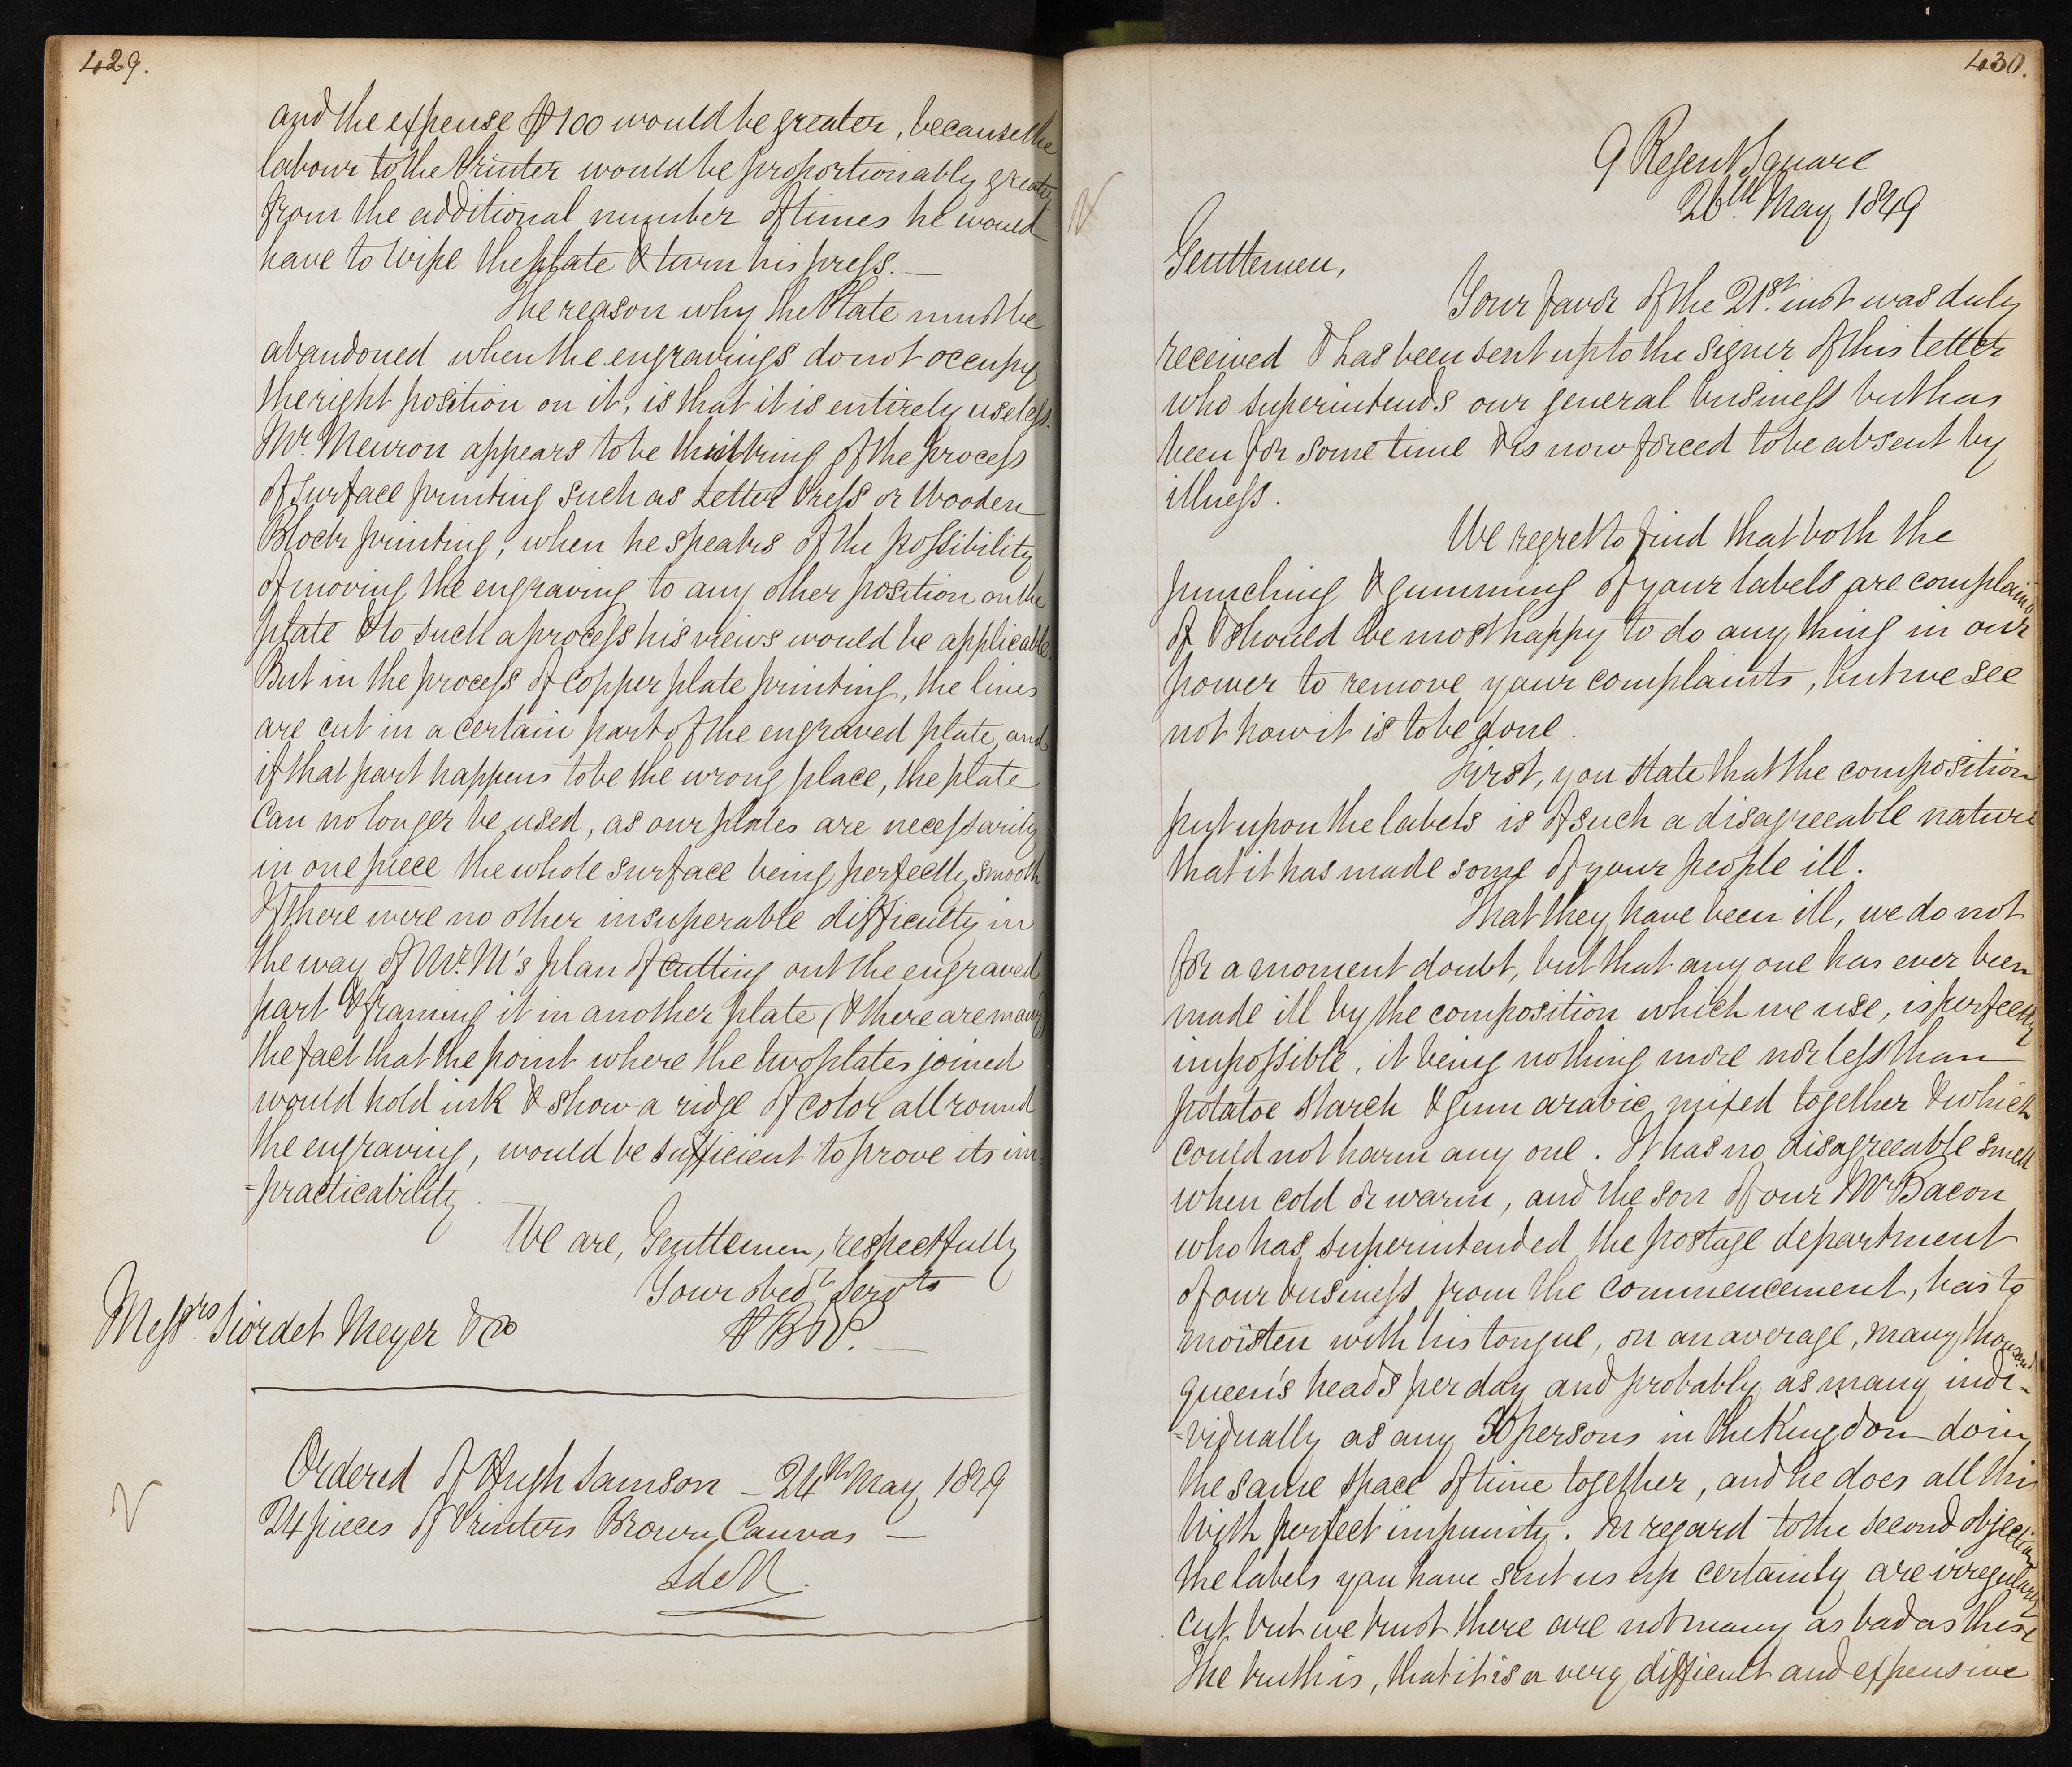 429.
and the expense P 100 would be greater, because the
labour to the Printer would be proportionably greater
from the additional number of times he would
have to wipe the plate & turn his press. —
The reason why the Plate must be
abandoned when the engravings do not occupy
the right position on it, is that it is entirely useless.
Mr. Meuron appears to be thinking of the process
of surface printing such as Letter Press or Wooden
Block printing, when he speaks of the possibility
of moving the engraving to any other position on the
plate & to such a process his views would be applicable.
But in the process of Copper plate printing, the lines
are cut in a certain part of the engraved plate, and
if that part happens to be the wrong place, the plate
can no longer be used, as our plates are necessarily
in one piece the whole surface being perfectly smooth
If there were no other insuperable difficulty in
the way of Mr. M's plan of cutting out the engraved
part & framing it in another plate (& there are many)
the fact that the point where the two plates joined
would hold ink & show a ridge of color all round
the engraving, would be sufficient to prove its im-
-practicability.
We are, Gentlemen, respectfully
Your obedt. Servts
PB&P. —
Messrs. Siordet Meyer & Co
Ordered of Hugh Samson — 24th May, 1849
24 pieces of Printers Brown Canvas —
430.
9 Regent Square
26th. May 1849
Gentlemen,
Your favor of the 21st. inst was duly
received & has been sent up to the signer of this letter
who superintends our general business but has
been for some time & is now forced to be absent by
illness.
We regret to find that both the
punching & gumming of your labels are complained
of & should be most happy to do any thing in our
power to remove your complaints, but we see
not how it is to be done.
First, you state that the composition
put upon the labels is of such a disagreeable nature
that it has made some of your people ill.
That they have been ill, we do not
for a moment doubt, but that any one has ever been
made ill by the composition which we use, is perfectly
impossible, it being nothing more nor less than
potatoe starch & gum arabic mixed together & which
could not harm any one. It has no disagreeable smell
when cold or warm, and the son of our Mr Bacon
who has superintended the postage department
of our business from the commencement, has to
moisten with his tongue, on an average, many thousand
queen's heads per day and probably as many indi-
-vidually as any 50 persons in the Kingdom doing
the same space of time together, and he does all this
with perfect impunity. In regard to the second objection
the labels you have sent us up certainly are irregularly
cut but we trust there are not many as bad as these
The truth is, that it is a very difficult and expensive